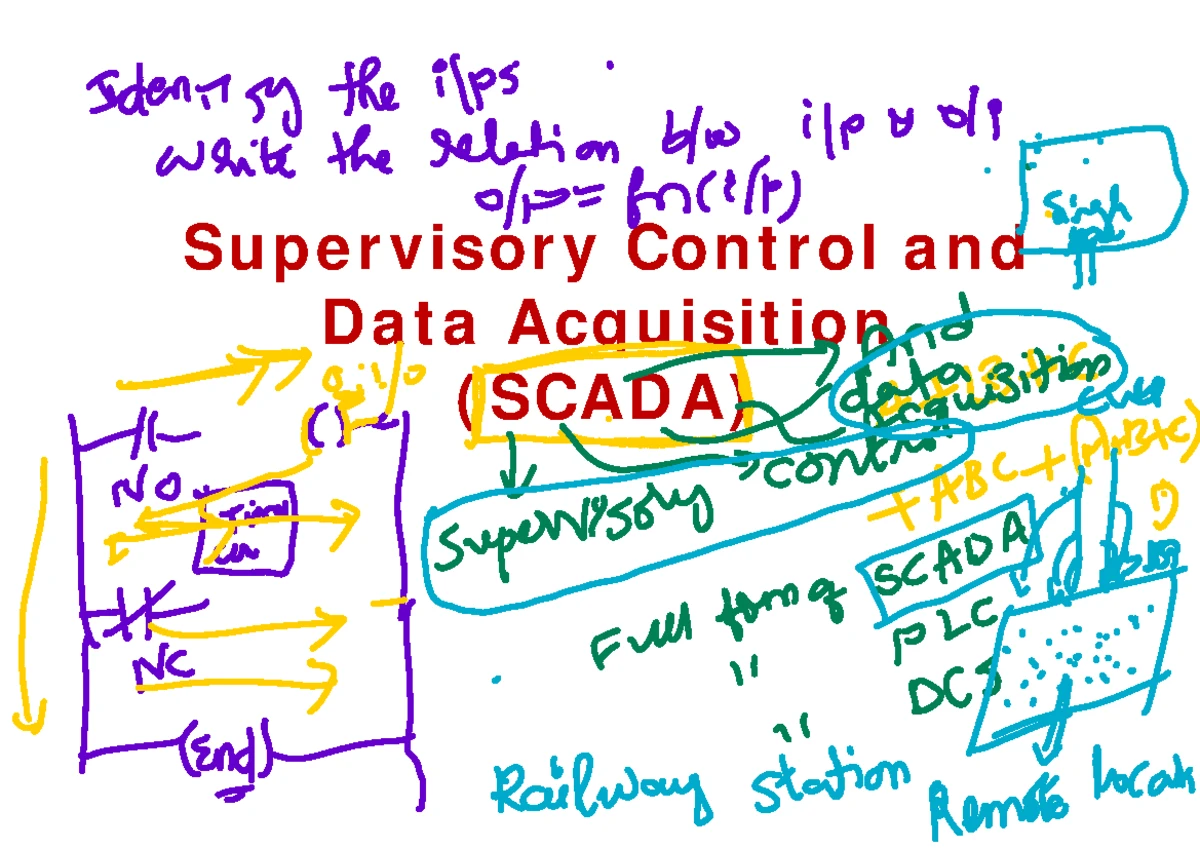 Identify the i/ps
write the relation b/w i/p & o/p
o/p = fn(i/p)
Singh
Supervisory Control and
Data Acquisition
(SCADA)
And
data
Acquisition
control
Supervisory
o/p
( )
NO
Timer
NC
(End)
+ ABC + (A+B+C)
Full form of SCADA
" PLC
" DCS
Railway station
Remote location